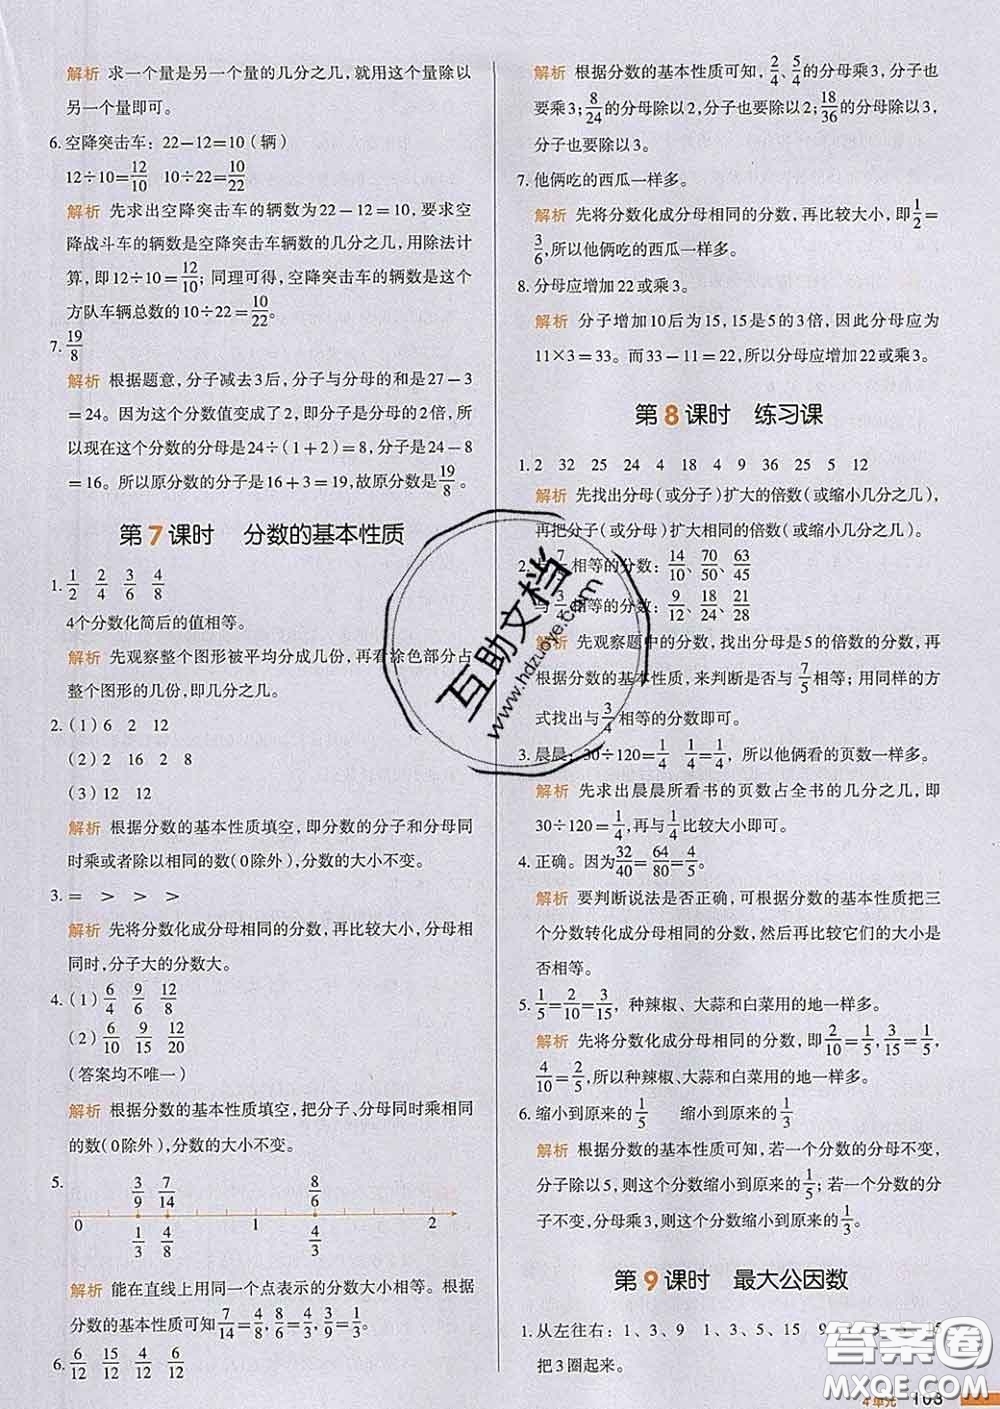 解析 求一个量是另一个量的几分之几，就用这个量除以
另一个量即可。
6. 空降突击车：22－12＝10（辆）
12÷10＝12/10 10÷22＝10/22
解析 先求出空降突击车的辆数为22－12＝10，要求空
降战斗车的辆数是空降突击车辆数的几分之几，用除法计
算，即12÷10＝12/10；同理可得，空降突击车的辆数是这个
方队车辆总数的10÷22＝10/22。
7. 19/8
解析 根据题意，分子减去3后，分子与分母的和是27－3
＝24。因为这个分数值变成了2，即分子是分母的2倍，所
以现在这个分数的分母是24÷（1＋2）＝8，分子是24－8
＝16。所以原分数的分子是16＋3＝19，故原分数是19/8。
第7课时 分数的基本性质
1. 1/2 2/4 3/6 4/8
4个分数化简后的值相等。
解析 先观察整个图形被平均分成几份，再看涂色部分占
整个图形的几份，即几分之几。
2.（1）6 2 12
（2）2 16 2 8
（3）12 12
解析 根据分数的基本性质填空，即分数的分子和分母同
时乘或者除以相同的数（0除外），分数的大小不变。
3. ＝ ＞ ＞ ＞
解析 先将分数化成分母相同的分数，再比较大小，分母相
同时，分子大的分数大。
4.（1）6/4 9/6 12/8
（2）6/10 9/15 12/20
（答案均不唯一）
解析 根据分数的基本性质填空，把分子、分母同时乘相同
的数（0除外），分数的大小不变。
5.
3/9 7/14 8/6
0 1 2
1/3 4/8 4/3
解析 能在直线上用同一个点表示的分数大小相等。根据
分数的基本性质可知7/14＝4/8，8/6＝4/3，3/9＝1/3。
6. 6/12 15/12 4/12 6/12
解析 根据分数的基本性质可知，2/4、5/4的分母乘3，分子也
要乘3；8/24的分母除以2，分子也要除以2；18/36的分母除以3，
分子也要除以3。
7. 他俩吃的西瓜一样多。
解析 先将分数化成分母相同的分数，再比较大小，即1/2＝
3/6，所以他俩吃的西瓜一样多。
8. 分母应增加22或乘3。
解析 分子增加10后为15，15是5的3倍，因此分母应为
11×3＝33。而33－11＝22，所以分母应增加22或乘3。
第8课时 练习课
1. 2 32 25 24 4 18 4 9 36 25 5 12
解析 先找出分母（或分子）扩大的倍数（或缩小几分之几），
再把分子（或分母）扩大相同的倍数（或缩小几分之几）。
2. 7/5相等的分数：14/10 70/50 63/45
与3/4相等的分数：9/12 18/24 21/28
解析 先观察题中的分数，找出分母是5的倍数的分数，再
根据分数的基本性质，来判断是否与7/5相等；用同样的方
式找出与3/4相等的分数即可。
3. 晨晨：30÷120＝1/4 1/4＝1/4，所以他俩看的页数一样多。
解析 先求出晨晨所看书的页数占全书的几分之几，即
30÷120＝1/4，再与1/4比较大小即可。
4. 正确。因为32/40＝64/80＝4/5。
解析 要判断说法是否正确，可根据分数的基本性质把三
个分数转化成分母相同的分数，然后再比较它们的大小是
否相等。
5. 1/5＝2/10＝3/15，种辣椒、大蒜和白菜用的地一样多。
解析 先将分数化成分母相同的分数，即2/10＝1/5，3/15＝1/5，
4/10＝2/5，所以种辣椒、大蒜和白菜用的地一样多。
6. 缩小到原来的1/5 缩小到原来的1/3
解析 根据分数的基本性质可知，若一个分数的分母不变，
分子除以5，则这个分数缩小到原来的1/5；若一个分数的分
子不变，分母乘3，则这个分数缩小到原来的1/3。
第9课时 最大公因数
1. 从左往右：1、3、9 1、3、5、15 9
把3圈起来。
4单元 103
互助文档
www.hdzuoye.com
答案圈